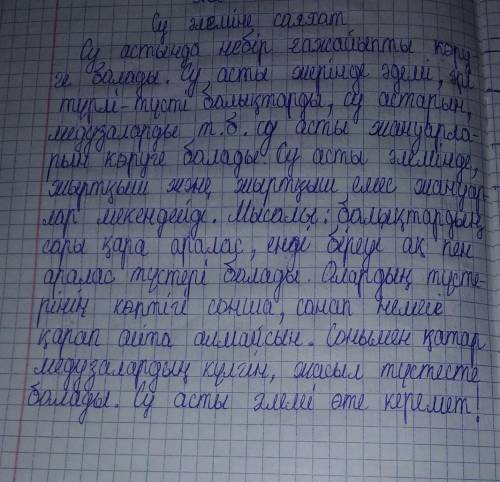 Су әлеміне саяхат
Су астында небір ғажайыпты көру-
ге болады. Су асты жерінде әдемі, әрі
түрлі-түсті балықтарды, су астарын,
медузаларды т.б. су асты жануарла-
рын көруге болады Су асты әлемінде,
жыртқыш және жыртқыш емес жануар-
лар мекендейді. Мысалы: балықтардың
сары қара аралас, енді біреуі ақ пен
аралас түстері болады. Олардың түсте-
рінің көптігі сонша, санап немесе
қарап айта алмайсын. Сонымен қатар
медузалардың күлгін, жасыл түстесте
болады. Су асты әлемі өте керемет!